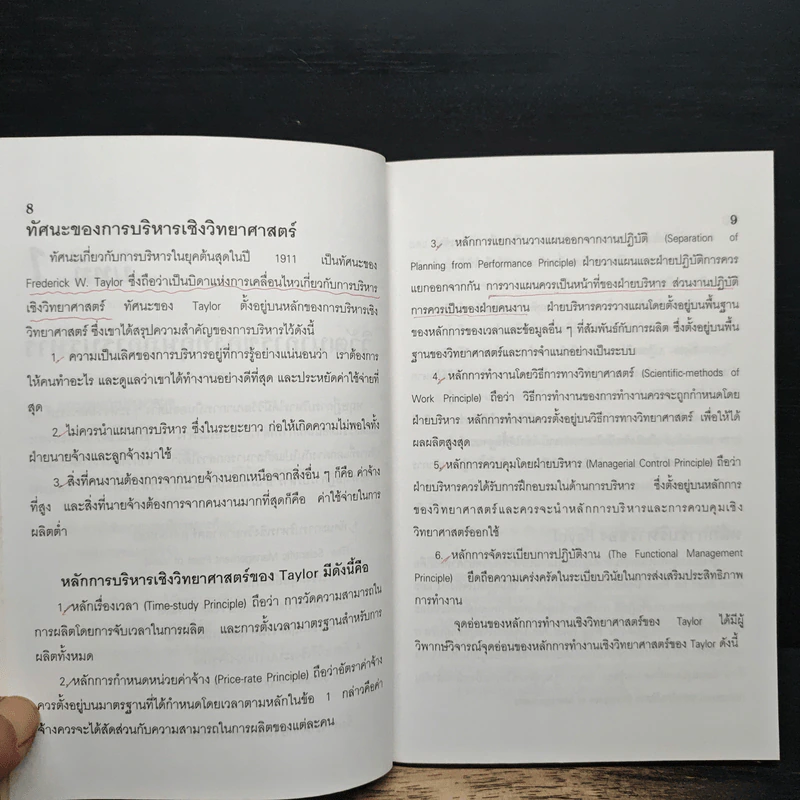 8
ทัศนะของการบริหารเชิงวิทยาศาสตร์
ทัศนะเกี่ยวกับการบริหารในยุคต้นสุดในปี 1911 เป็นทัศนะของ
Frederick W. Taylor ซึ่งถือว่าเป็นบิดาแห่งการเคลื่อนไหวเกี่ยวกับการบริหาร
เชิงวิทยาศาสตร์ ทัศนะของ Taylor ตั้งอยู่บนหลักของการบริหารเชิง
วิทยาศาสตร์ ซึ่งเขาได้สรุปความสำคัญของการบริหารไว้ดังนี้
1. ความเป็นเลิศของการบริหารอยู่ที่การรู้อย่างแน่นอนว่า เราต้องการ
ให้คนทำอะไร และดูแลว่าเขาได้ทำงานอย่างดีที่สุด และประหยัดค่าใช้จ่ายที่
สุด
2. ไม่ควรนำแผนการบริหาร ซึ่งในระยะยาว ก่อให้เกิดความไม่พอใจทั้ง
ฝ่ายนายจ้างและลูกจ้างมาใช้
3. สิ่งที่คนงานต้องการจากนายจ้างนอกเหนือจากสิ่งอื่น ๆ ก็คือ ค่าจ้าง
ที่สูง และสิ่งที่นายจ้างต้องการจากคนงานมากที่สุดก็คือ ค่าใช้จ่ายในการ
ผลิตต่ำ
หลักการบริหารเชิงวิทยาศาสตร์ของ Taylor มีดังนี้คือ
1. หลักเรื่องเวลา (Time-study Principle) ถือว่า การวัดความสามารถใน
การผลิตโดยการจับเวลาในการผลิต และการตั้งเวลามาตรฐานสำหรับการ
ผลิตทั้งหมด
2. หลักการกำหนดหน่วยค่าจ้าง (Price-rate Principle) ถือว่าอัตราค่าจ้าง
ควรตั้งอยู่บนมาตรฐานที่ได้กำหนดโดยเวลาตามหลักในข้อ 1 กล่าวคือค่า
จ้างควรจะได้สัดส่วนกับความสามารถในการผลิตของแต่ละคน
9
3. หลักการแยกงานวางแผนออกจากงานปฏิบัติ (Separation of
Planning from Performance Principle) ฝ่ายวางแผนและฝ่ายปฏิบัติการควร
แยกออกจากกัน การวางแผนควรเป็นหน้าที่ของฝ่ายบริหาร ส่วนงานปฏิบัติ
การควรเป็นของฝ่ายคนงาน ฝ่ายบริหารควรวางแผนโดยตั้งอยู่บนพื้นฐาน
ของหลักการของเวลาและข้อมูลอื่น ๆ ที่สัมพันธ์กับการผลิต ซึ่งตั้งอยู่บนพื้น
ฐานของวิทยาศาสตร์และการจำแนกอย่างเป็นระบบ
4. หลักการทำงานโดยวิธีการทางวิทยาศาสตร์ (Scientific-methods of
Work Principle) ถือว่า วิธีการทำงานของการทำงานควรจะถูกกำหนดโดย
ฝ่ายบริหาร หลักการทำงานควรตั้งอยู่บนวิธีการทางวิทยาศาสตร์ เพื่อให้ได้
ผลผลิตสูงสุด
5. หลักการควบคุมโดยฝ่ายบริหาร (Managerial Control Principle) ถือว่า
ฝ่ายบริหารควรได้รับการฝึกอบรมในด้านการบริหาร ซึ่งตั้งอยู่บนหลักการ
ของวิทยาศาสตร์และควรจะนำหลักการบริหารและการควบคุมเชิง
วิทยาศาสตร์ออกใช้
6. หลักการจัดระเบียบการปฏิบัติงาน (The Functional Management
Principle) ยึดถือความเคร่งครัดในระเบียบวินัยในการส่งเสริมประสิทธิภาพ
การทำงาน
จุดอ่อนของหลักการทำงานเชิงวิทยาศาสตร์ของ Taylor ได้มีผู้
วิพากษ์วิจารณ์จุดอ่อนของหลักการทำงานเชิงวิทยาศาสตร์ของ Taylor ดังนี้